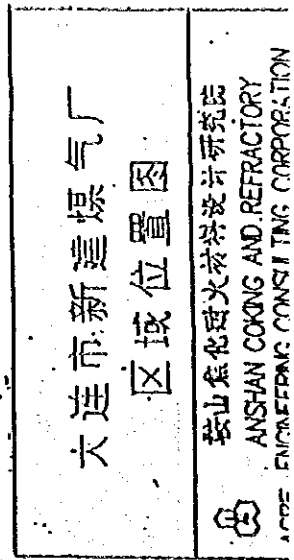 大连市新建煤气厂
区域位置图
鞍山焦化耐火材料设计研究院
ANSHAN COKING AND REFRACTORY
ACRE ENGINEERING CONSULTING CORPORATION